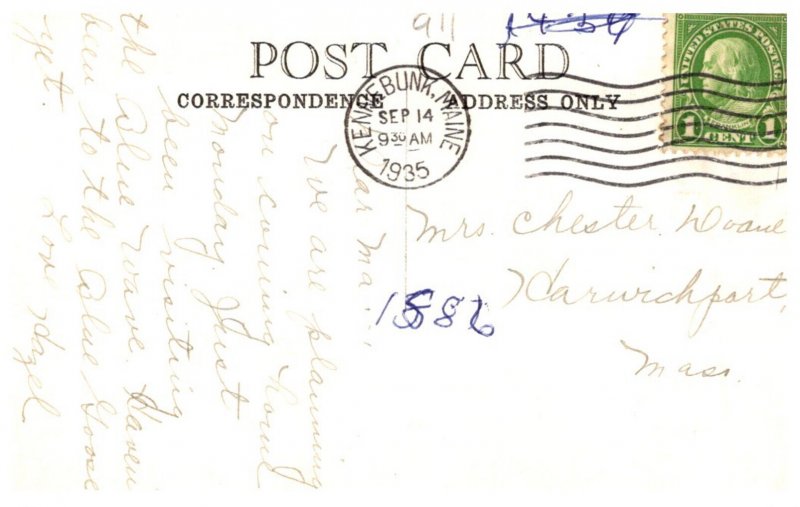 911
14.56
POST CARD
CORRESPONDENCE ADDRESS ONLY
KENNEBUNK, MAINE
SEP 14
9 30 AM
1935
UNITED STATES POSTAGE
FRANKLIN
1 CENT 1
Mrs. Chester Doane
Harwichport,
Mass.
1886
Dear Ma -
We are planning
on coming home
Monday. Just
been visiting
the Blue Wave. Haven't
been to the Blue Goose
yet.
Love Hazel